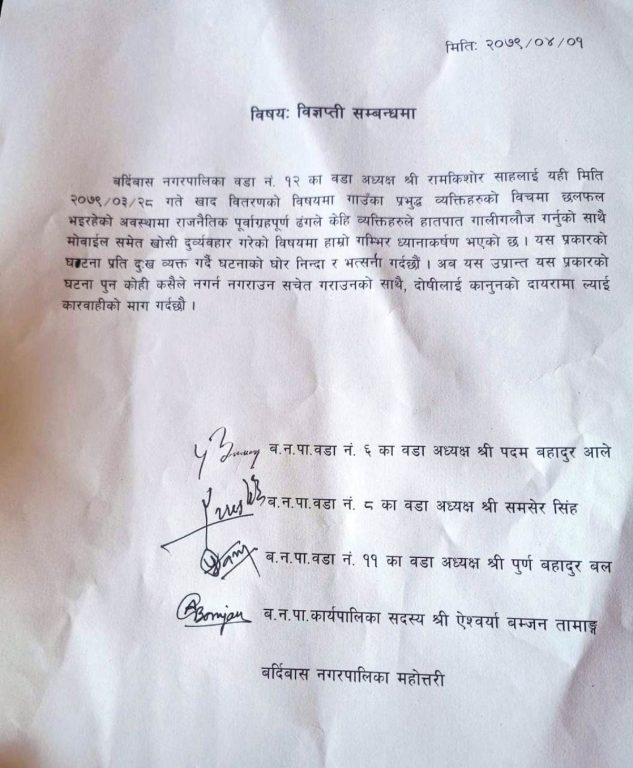 मितिः २०७९/०४/०१
विषयः विज्ञप्ती सम्बन्धमा
बर्दिबास नगरपालिका वडा नं. १२ का वडा अध्यक्ष श्री रामकिशोर साहलाई यही मिति
२०७९/०३/२८ गते खाद वितरणको विषयमा गाउँका प्रभुद्ध व्यक्तिहरुको विचमा छलफल
भइरहेको अवस्थामा राजनैतिक पूर्वाग्रहपूर्ण ढंगले केहि व्यक्तिहरुले हातपात गालीगलौज गर्नुको साथै
मोवाईल समेत खोसी दुर्व्यवहार गरेको विषयमा हाम्रो गम्भिर ध्यानाकर्षण भएको छ । यस प्रकारको
घटना प्रति दुःख व्यक्त गर्दै घटनाको घोर निन्दा र भर्त्सना गर्दछौं । अब यस उप्रान्त यस प्रकारको
घटना पुन कोही कसैले नगर्न नगराउन सचेत गराउनको साथै, दोषीलाई कानुनको दायरामा ल्याई
कारवाहीको माग गर्दछौ ।
ब.न.पा.वडा नं. ६ का वडा अध्यक्ष श्री पदम बहादुर आले
ब.न.पा.वडा नं. ८ का वडा अध्यक्ष श्री समसेर सिंह
ब.न.पा.वडा नं. ११ का वडा अध्यक्ष श्री पुर्ण बहादुर बल
ABomjan ब.न.पा.कार्यपालिका सदस्य श्री ऐश्वर्या बम्जन तामाङ्ग
बर्दिबास नगरपालिका महोत्तरी